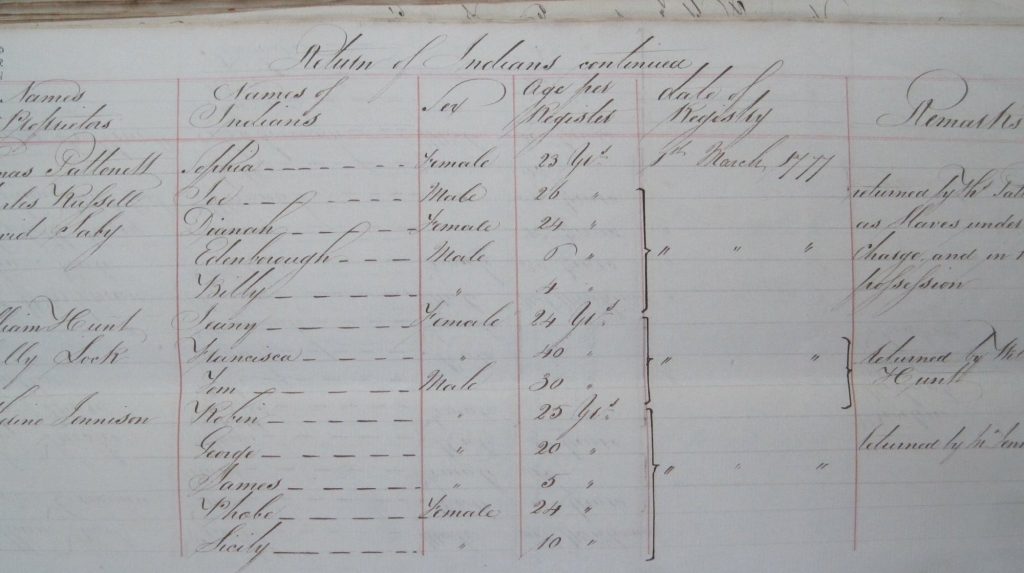 Return of Indians continued
Names Proprietors Names of Indians Sex Age per Register date of Registry Remarks
mas Pattonett Sophia Female 23 Yrs. 1st March, 1777
rles Russell Joe Male 26 " returned by Ths. Patt
vid Saby Dianah Female 24 " as Slaves under
Edenborough Male 6 " " " " Charge, and in
Billy " 4 " possession
liam Hunt Jeany Female 24 Yrs.
lly Lock Francisca " 40 " " " returned by Wil
Tom Male 30 " Hunt
Jennison Robin " 25 Yrs.
George " 20 " returned by Jenn
James " 5 " " " "
Phobe Female 24 "
Sicily " 10 "